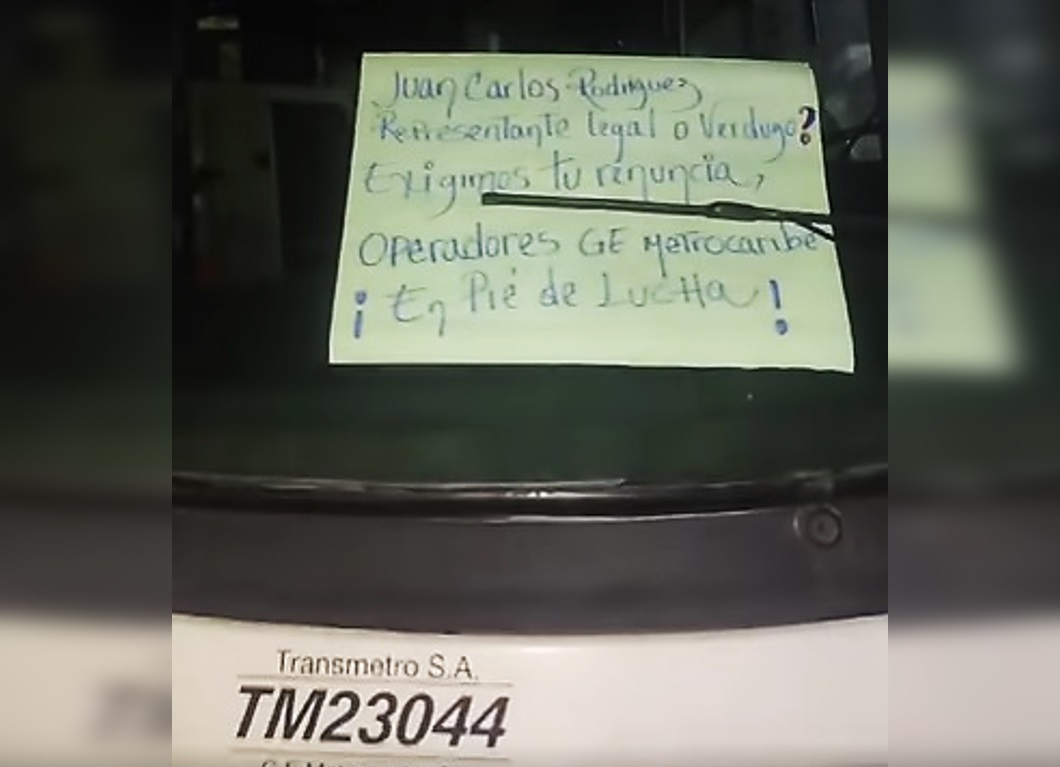 Juan Carlos Rodriguez
Representante legal o Verdugo?
Exigimos tu renuncia,
Operadores GE Metrocaribe
¡En Pié de Lucha!
Transmetro S.A.
TM23044